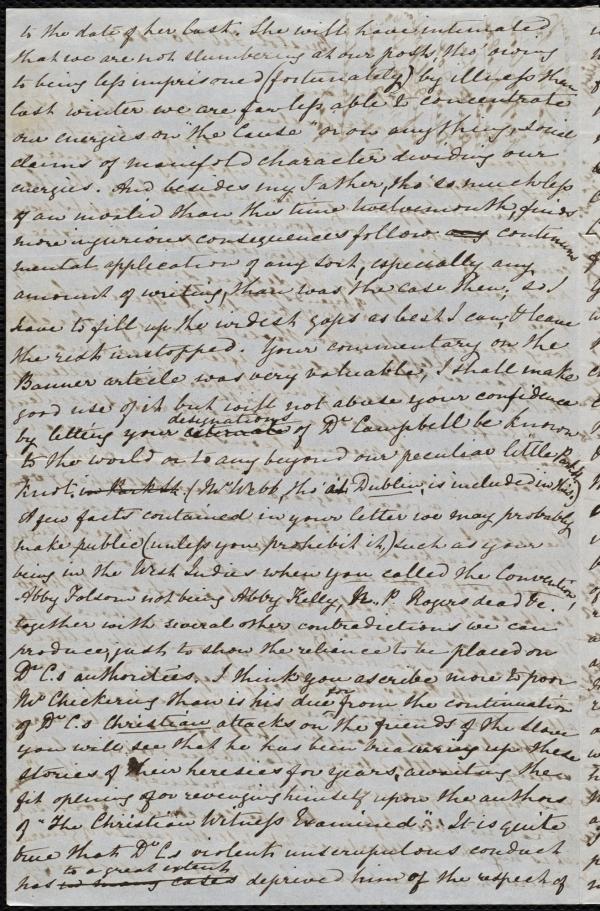 to the date of her last. She will have intimated
that we are not slumbering at our post, tho' owing
to being less imprisoned (fortunately) by illness than
last winter we are far less able to concentrate
our energies on "the Cause" or on anything, social
claims of manifold character dividing our
energies. And besides my Father, tho' so much less
of an invalid than this time twelvemonth, finds
more injurious consequences follow any continuous
mental application of any sort, especially any
amount of writing, than was the case then, so I
have to fill up the widest gaps as best I can, & leave
the rest unstopped. Your commentary on the
Banner article was very valuable, I shall make
good use of it but will not abuse your confidence
by letting your estimate designations of Dr Campbell be known
to the world or to any beyond our peculiar little
knot (Mr Webb, tho' at Dublin, is included in this)
A few facts contained in your letter we may probably
make public (unless you prohibit it,) such as your
being in the West Indies when you called the Convention,
Abby Folsom not being Abby Kelly, N. P. Rogers dead &c.
together with several other contradictions we can
produce, just to show the reliance to be placed on
Dr C.s authorities. I think you ascribe more to poor
Mr Chickering than is his due for from the continuation
of Dr C.s Christian attacks on the friends of the slave
you will see that he has been treasuring up these
stories of their heresies for years, awaiting the
fit opening for revenging himself upon the authors
of "The Christian Witness Examined". It is quite
true that Dr C.s violent unscrupulous conduct
has in many cases to a great extent deprived him of the respect of